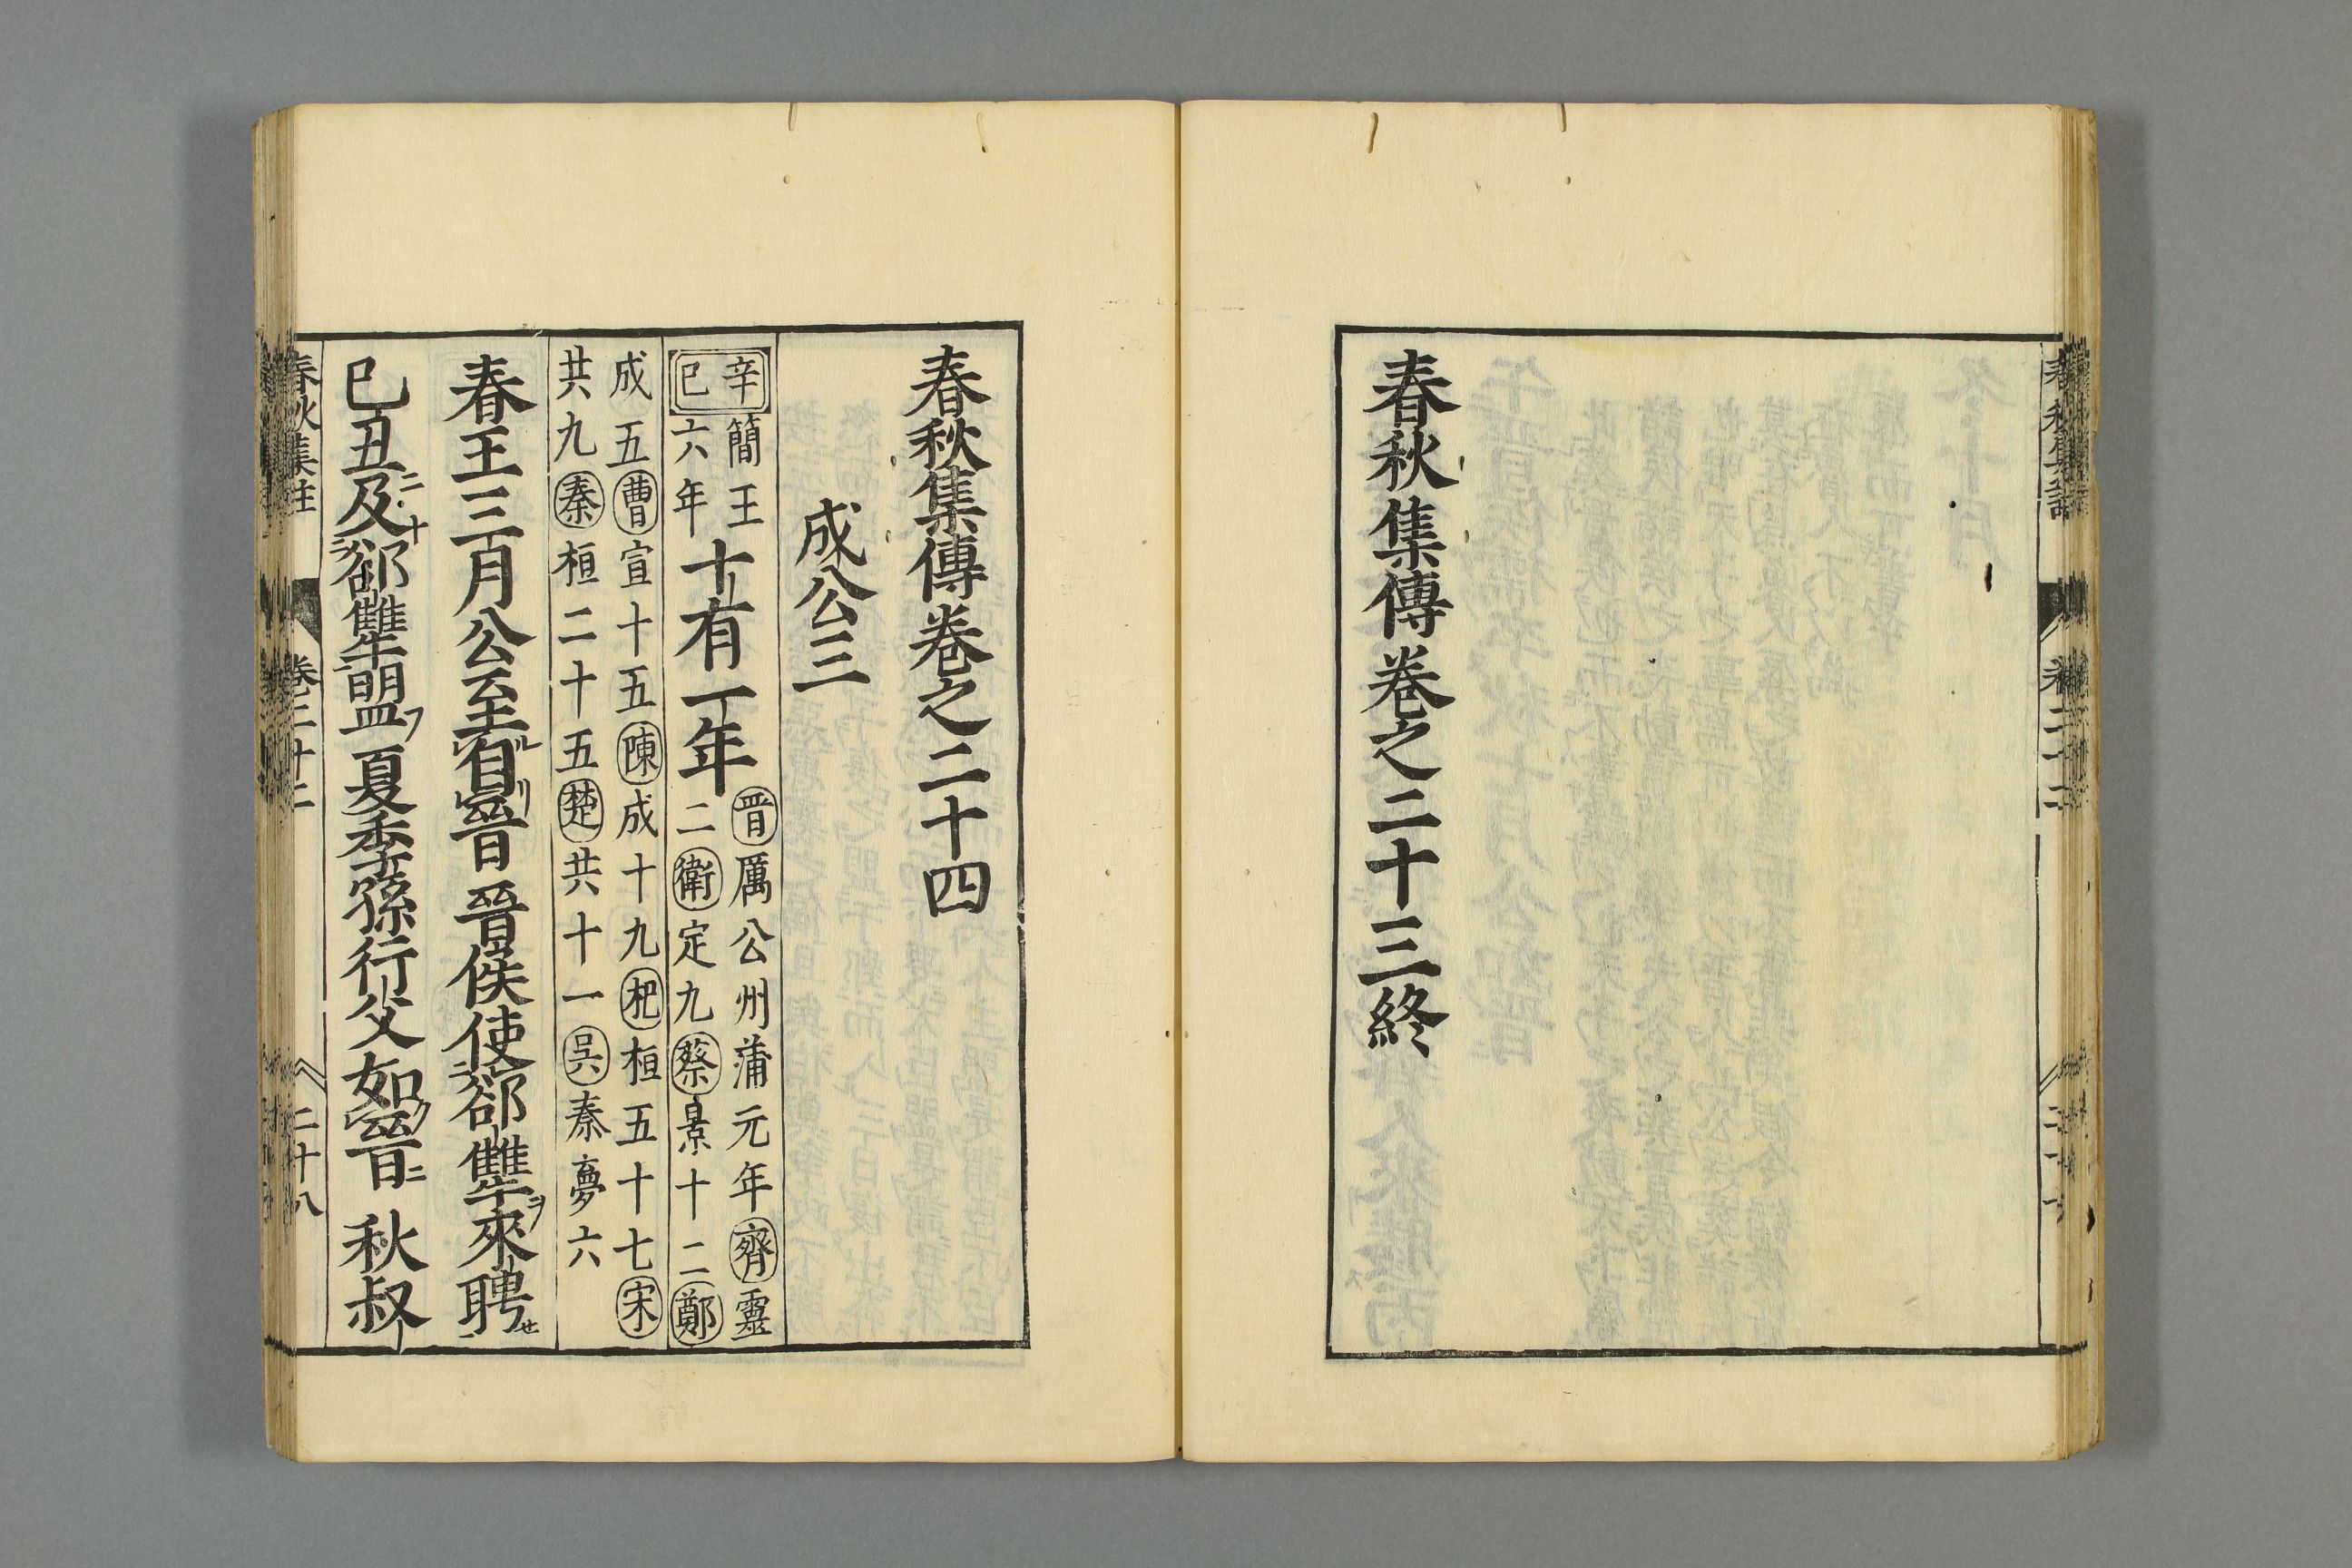 春秋集傳卷之二十三終
春秋集傳卷之二十四
成公三
辛巳
簡王
六年
十有一年
晋厲公州蒲元年齊靈
二衛定九蔡景十二鄭
成五曹宣十五陳成十九杞桓五十七宋
共九秦桓二十五楚共十一吳秦夢六
春王三月公至自晉晉侯使郤犫來聘
已丑及郤犫盟夏季孫行父如晉秋叔
春秋集註
二十八